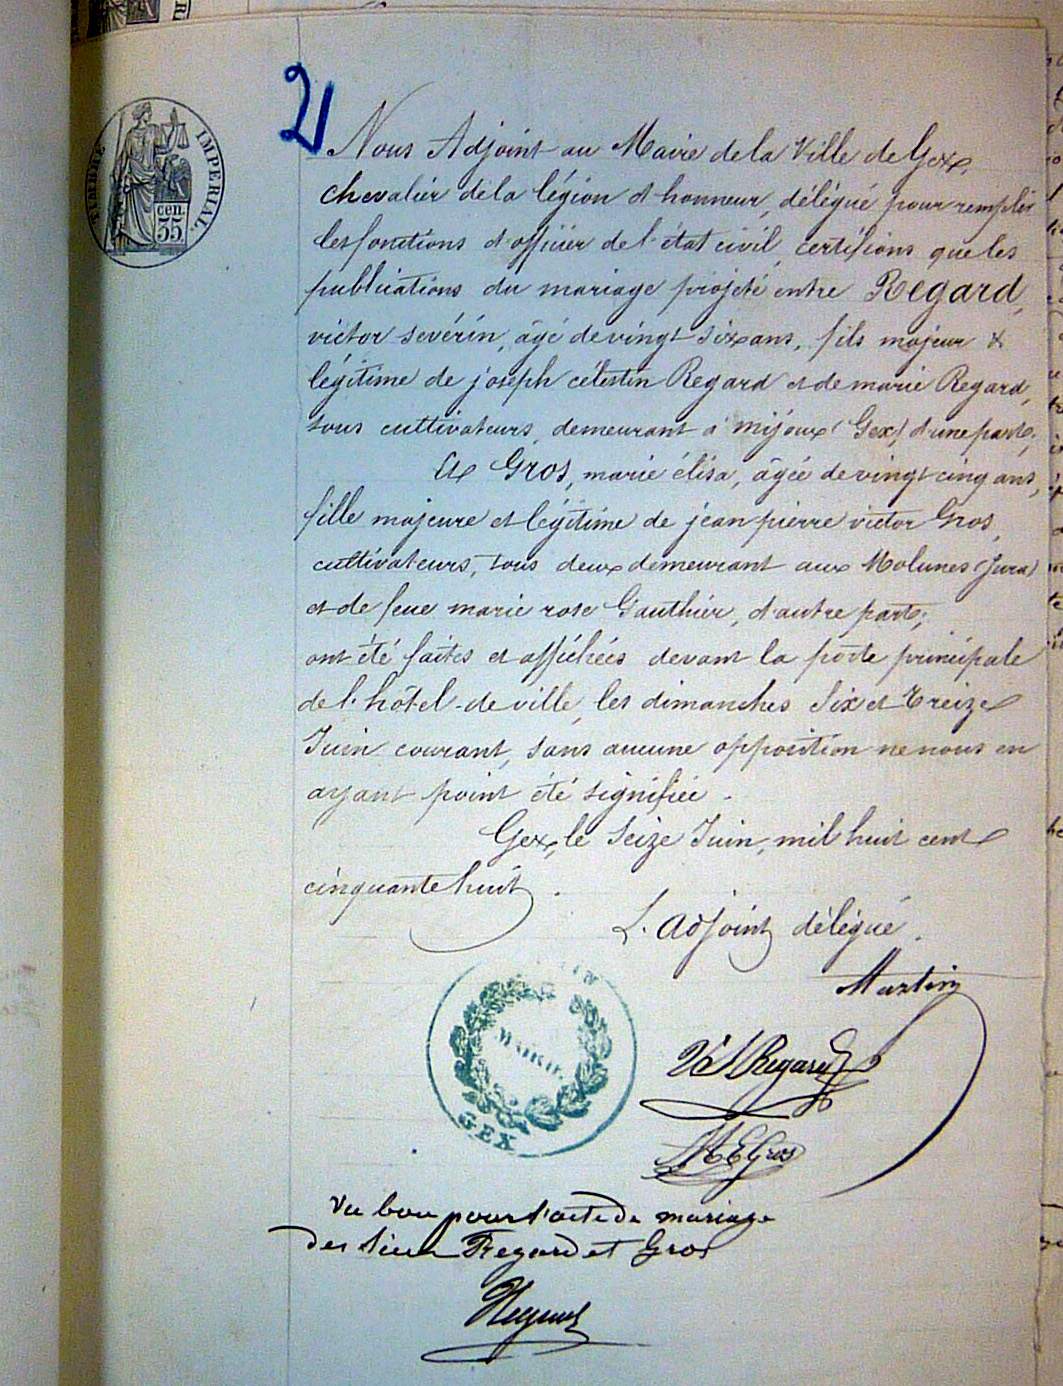 21
TIMBRE IMPERIAL.
cen.
35
Nous Adjoint au Maire de la Ville de Gex,
chevalier de la légion d'honneur, délégué pour remplir
les fonctions d'officier de l'état civil, certifions que les
publications du mariage projeté entre Regard,
victor sevérin, âgé de vingt six ans, fils majeur &
légitime de joseph célestin Regard et de marie Regard,
tous cultivateurs, demeurant à mijoux (Gex) d'une part;
Et Gros, marie élisa, âgée de vingt cinq ans,
fille majeure et légitime de jean pierre victor Gros,
cultivateurs, tous deux demeurant aux Molunes (jura)
et de feue marie rose Gauthier, d'autre part;
ont été faites et affichées devant la porte principale
de l'hôtel-de ville, les dimanches six et treize
Juin courant, sans aucune opposition ne nous en
ayant point été signifiée.
Gex, le seize Juin, mil huit cent
cinquante huit.
L'adjoint délégué.
Martin
MAIRIE
GEX
Vr S Regard
M E Gros
Vu bon pour l'acte de mariage
des sieur Regard et Gros